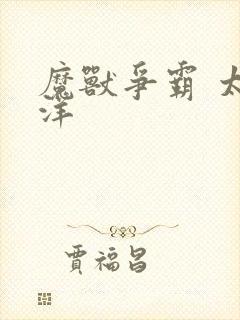 魔獸爭霸 太
洋
賈福昌